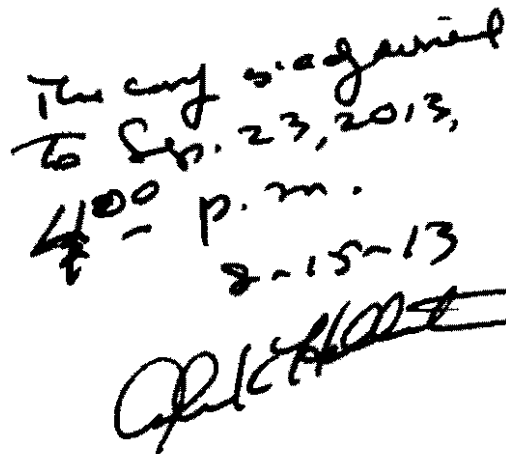 The conf is adjourned
to Sep. 23, 2013,
4:00 p.m.
8-15-13